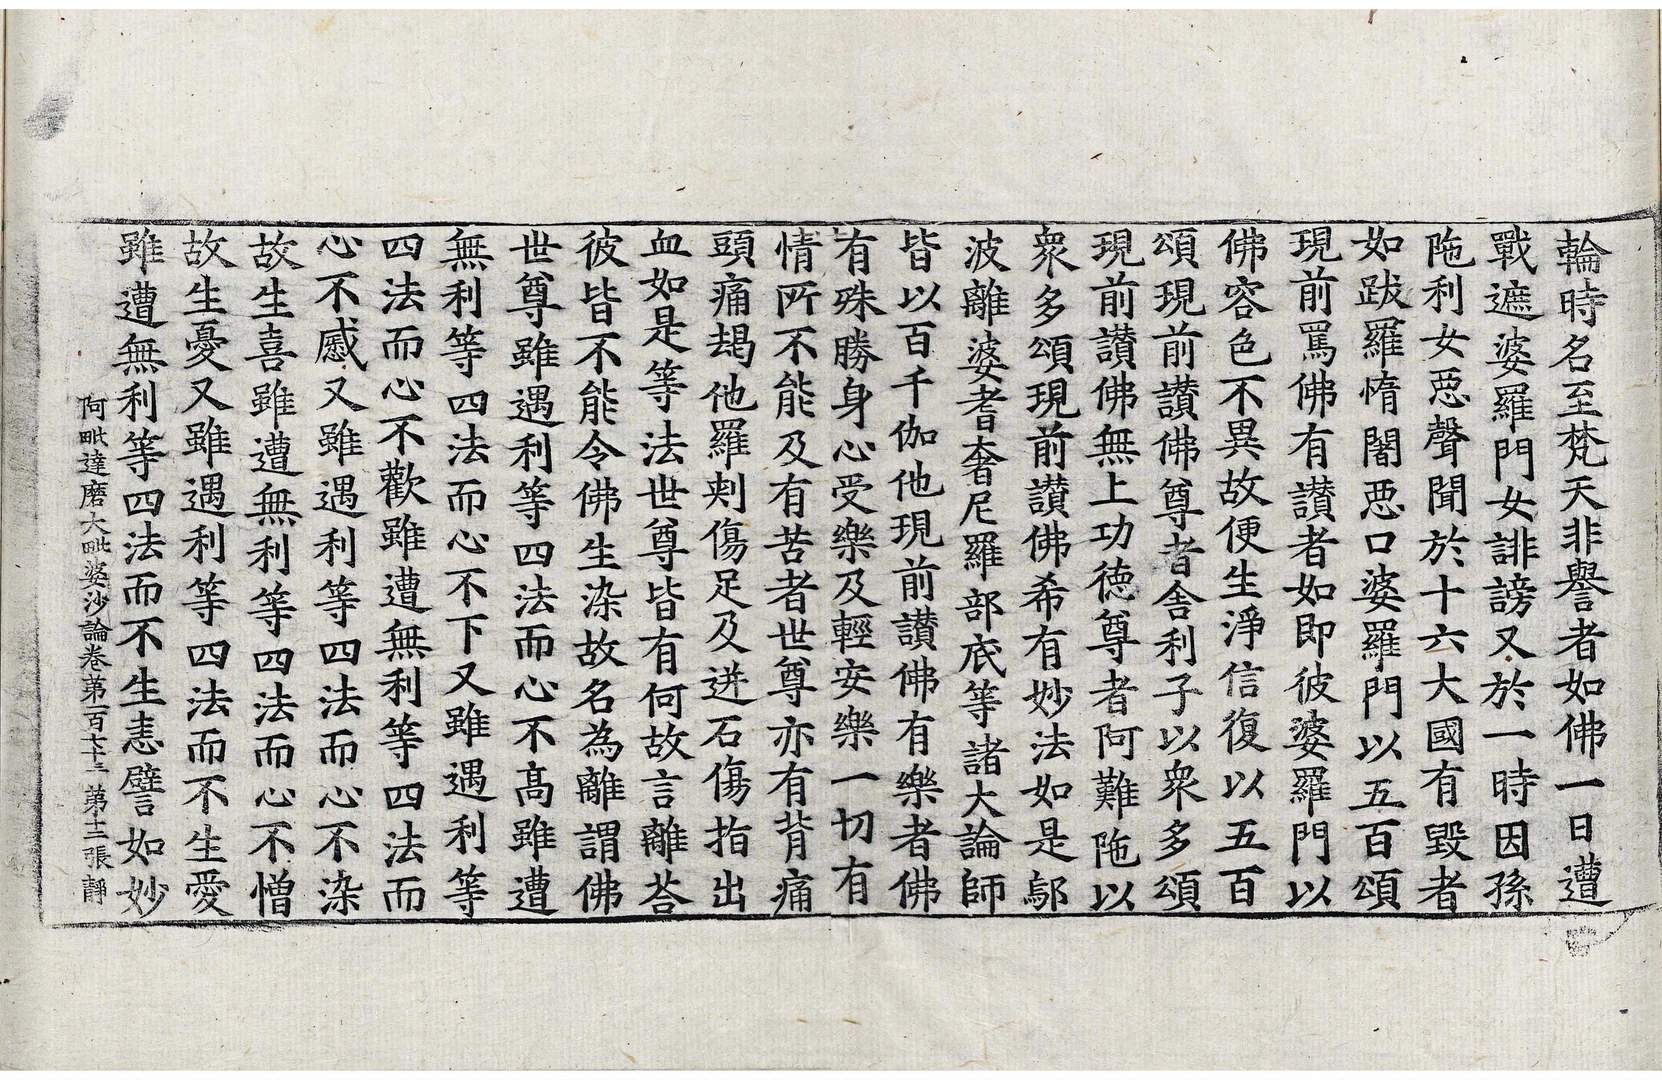 輪時名至梵天非譽者如佛一日遭
戰遮婆羅門女誹謗又於一時因孫
陁利女惡聲聞於十六大國有毀者
如跋羅惰闍惡口婆羅門以五百頌
現前罵佛有讃者如即彼婆羅門以
佛容色不異故便生淨信復以五百
頌現前讃佛尊者舍利子以衆多頌
現前讃佛無上功德尊者阿難陁以
衆多頌現前讃佛希有妙法如是鄔
波離婆耆奢尼羅部底等諸大論師
皆以百千伽他現前讃佛有樂者佛
有殊勝身心受樂及輕安樂一切有
情所不能及有苦者世尊亦有背痛
頭痛朅他羅刾傷足及迸石傷指出
血如是等法世尊皆有何故言離荅
彼皆不能令佛生染故名為離謂佛
世尊雖遇利等四法而心不高雖遭
無利等四法而心不下又雖遇利等
四法而心不歡雖遭無利等四法而
心不慼又雖遇利等四法而心不染
故生喜雖遭無利等四法而心不憎
故生憂又雖遇利等四法而不生愛
雖遭無利等四法而不生恚譬如妙
阿毗達磨大毗婆沙論卷第一百七十三 第十二張 靜